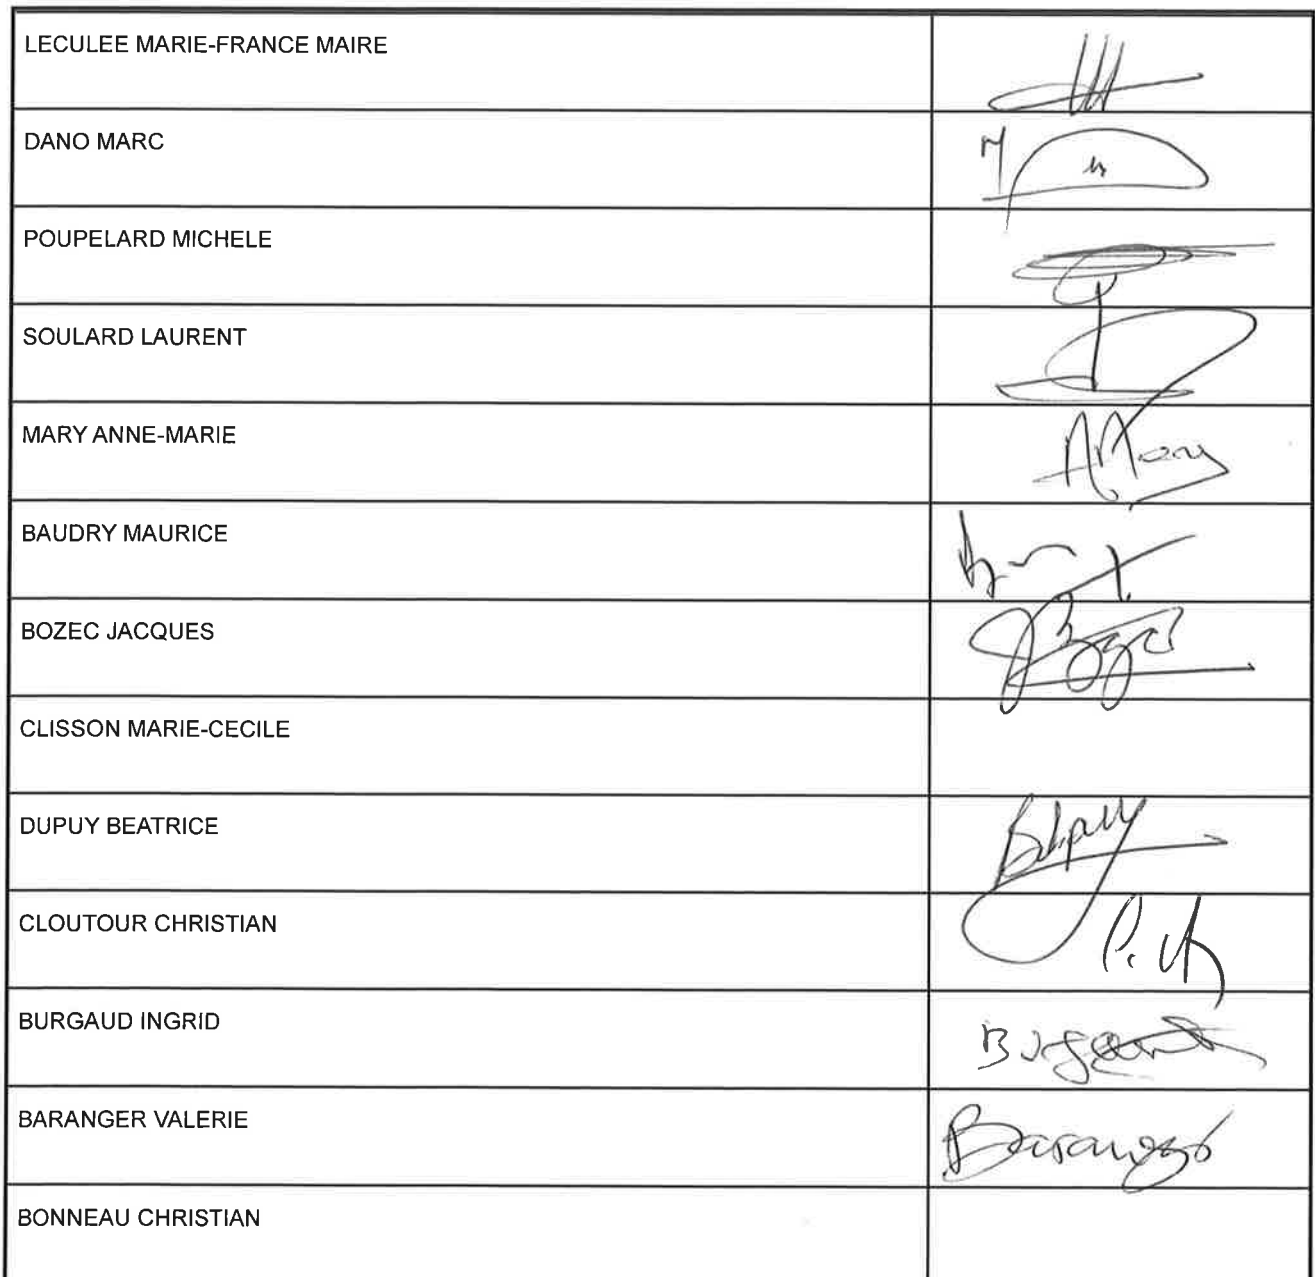 LECULEE MARIE-FRANCE MAIRE
DANO MARC
POUPELARD MICHELE
SOULARD LAURENT
MARY ANNE-MARIE
AMary
BAUDRY MAURICE
BOZEC JACQUES
Bozec
CLISSON MARIE-CECILE
DUPUY BEATRICE
CLOUTOUR CHRISTIAN
BURGAUD INGRID
Burgaud
BARANGER VALERIE
Baranger
BONNEAU CHRISTIAN